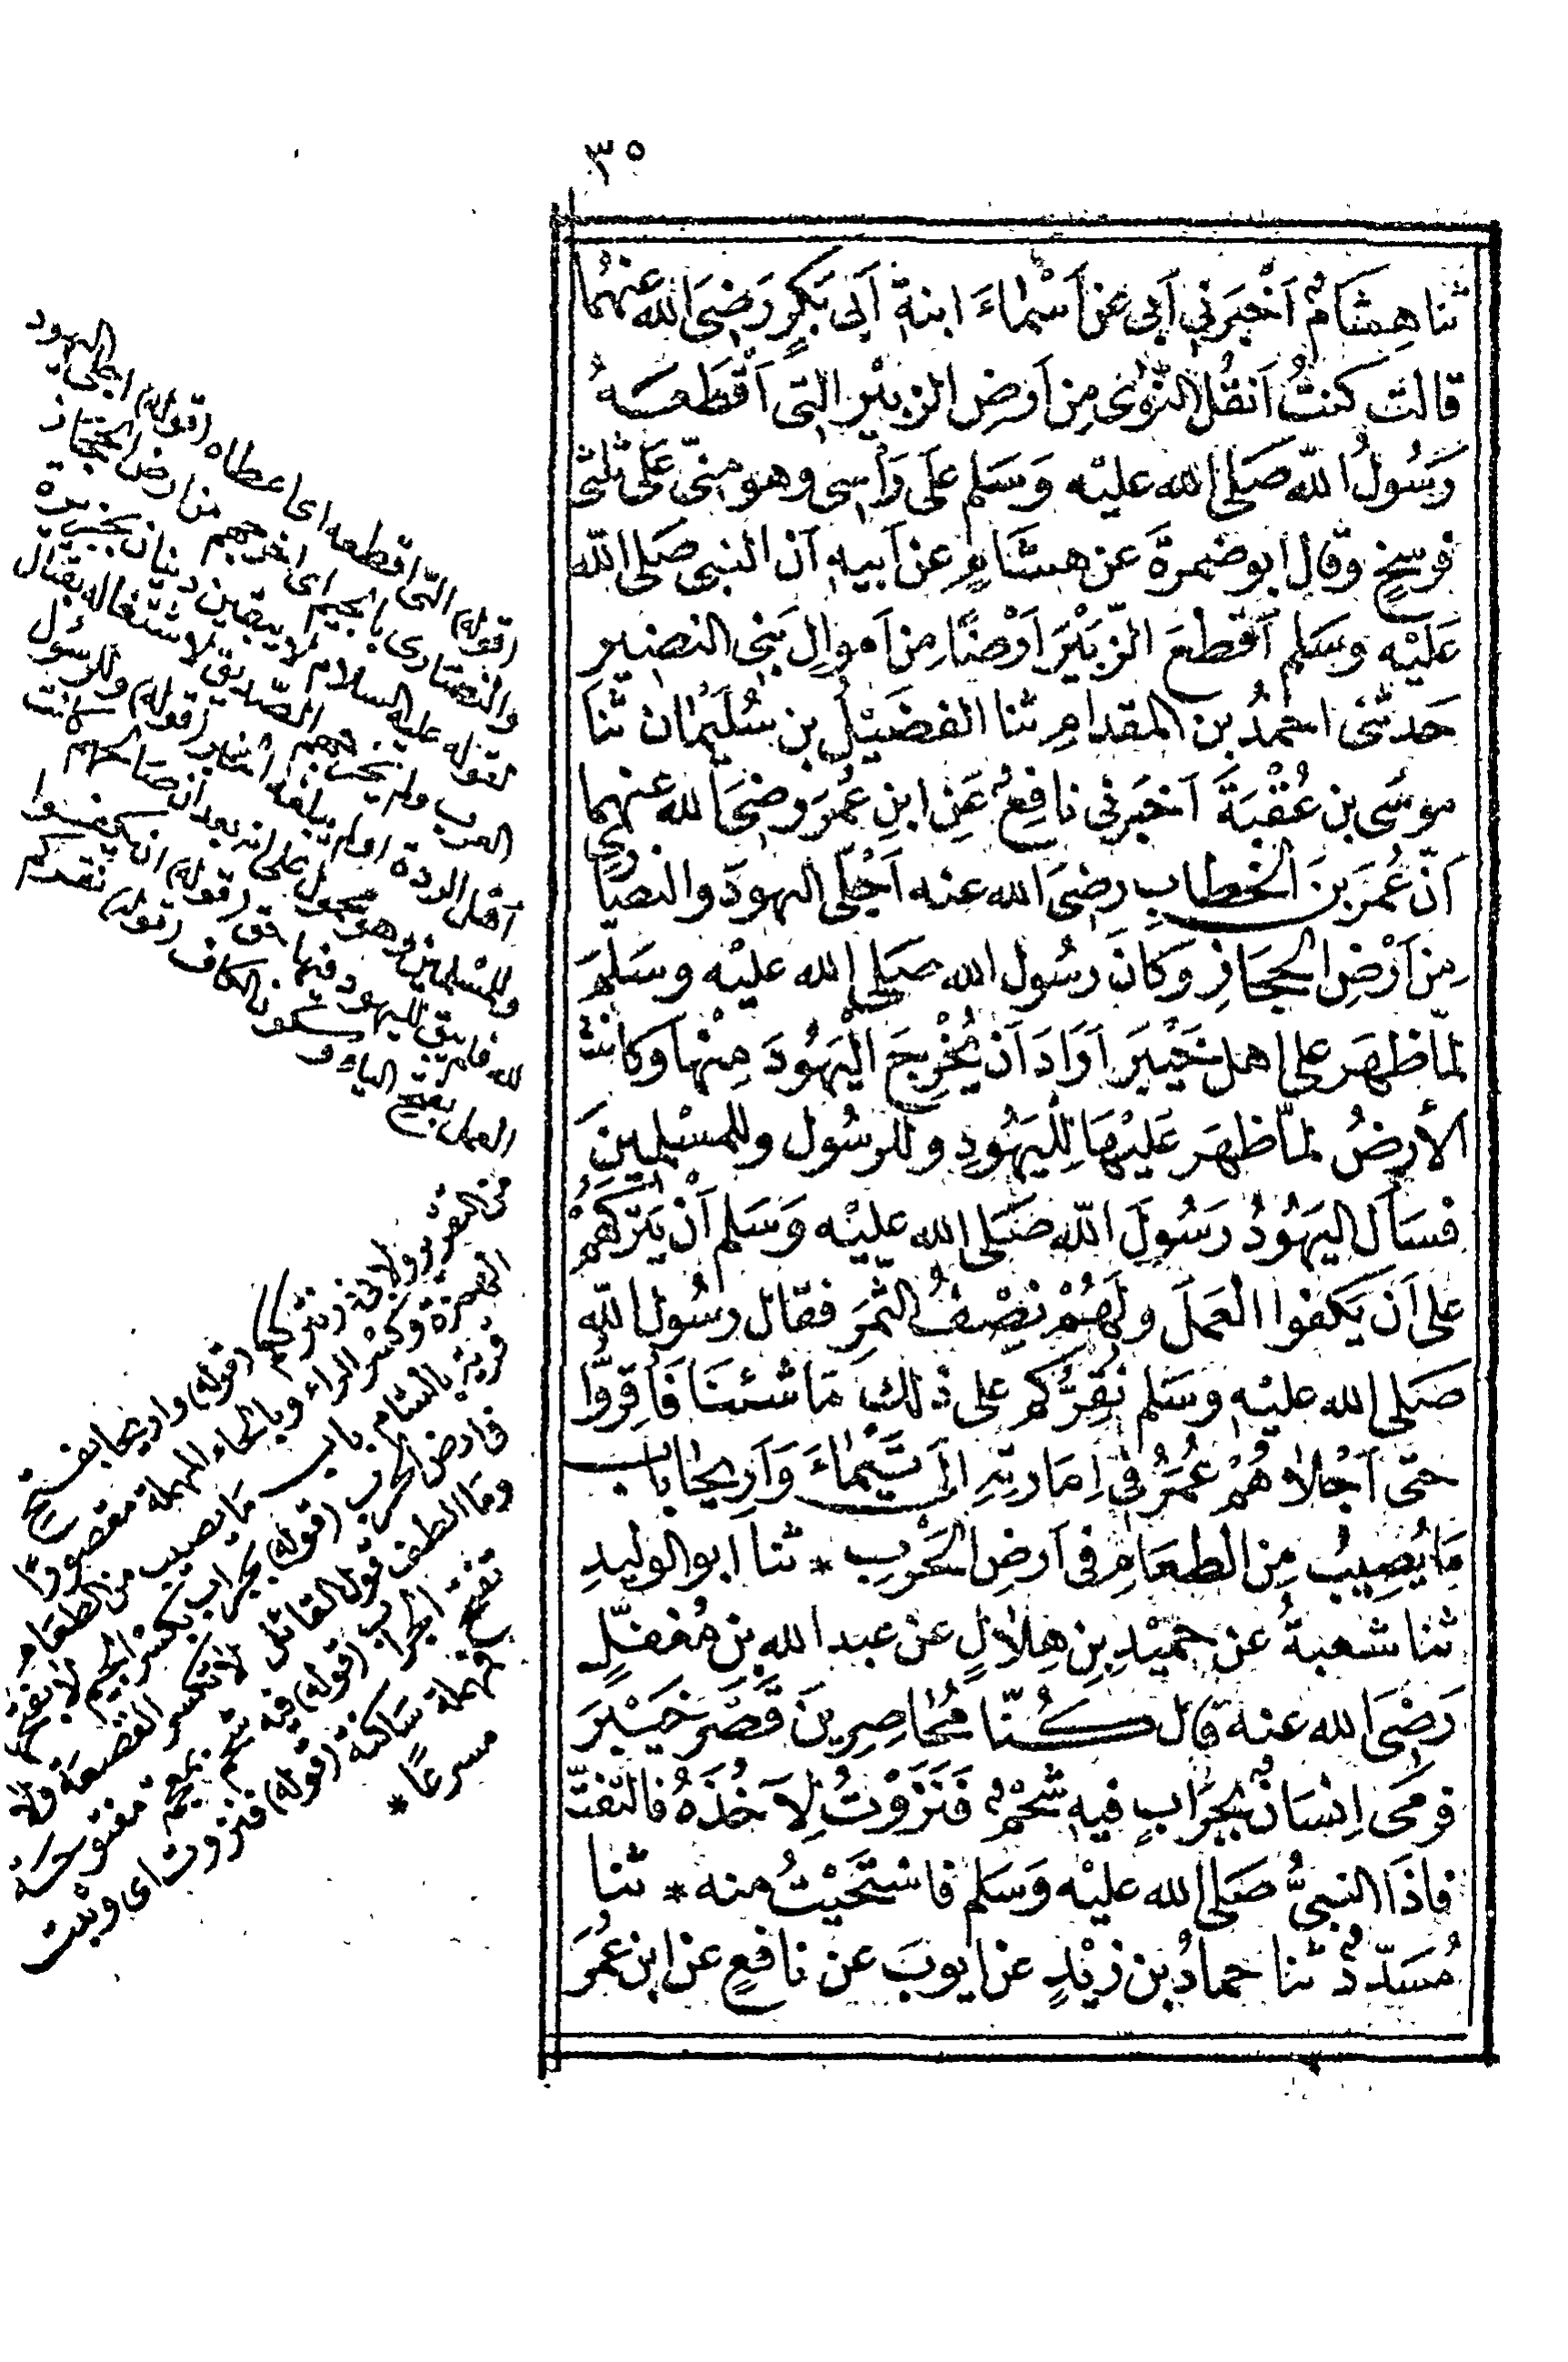 ٣٥
ثنا هِشَامٌ أَخْبَرَنِي أَبِي عَنْ أَسْمَاءَ ابنة أَبِي بَكْرٍ رَضِيَ الله عنهُمَا
قالت كنتُ أَنقُلُ النَّوَى مِن أَرْضِ الزبَيْرِ التِي أَقْطَعَهُ
رَسُولُ اللّه صَلى الله عليْه وَسَلم عَلَى رَأْسِي وهو مِنِّي عَلَى ثلثَى
فرسخٍ وقال ابو ضمرةَ عن هشَامٍ عن أبيهِ أن النبى صَلى الله
عَلَيْه وسَلم أَقطعَ الزّبَيْرَ أَرْضًا مِن أموالِ بَنِي النضِيرِ
حَدثَنى احمدُ بن المقدامِ ثنا الفضَيْلُ بن سُلَيْمَان ثنا
موسَى بن عُقْبَةَ أخبَرنى نافِعٌ عَنِ ابنِ عُمَرَ رضِىَ الله عنهما
أَنّ عُمَرَ بنَ الخطابِ رضِىَ الله عنه أَجْلَى اليهودَ والنصارى
مِن أَرْضِ الحِجَازِ وَكَانَ رسُول الله صَلى الله عليْه وسَلَّمَ
لمّا ظهَرَ على اهل خَيْبَرَ أَرَادَ أَن يُخْرِجَ الْيَهُودَ مِنْهَا وكانَت
الأرضُ لمّا ظهَرَ عَليْهَا لِلْيَهُودِ وللرسُول وللمسْلِمِينَ
فسَأَل اليهُودُ رَسُولَ اللّه صَلى الله عليْه وَسَلم أَنْ يَتركَهُمْ
على أَن يَكفوا العَمَلَ ولَهُمْ نِصْفُ الثَّمَرِ فقال رسُول اللّه
صَلى الله عليْه وسَلم نُقِرُّكم على ذلك مَا شئنَا فَأُقِرُّوا
حتى أَجْلاهُمْ عُمَرُ فى إمَارتِهِ إلَى تَيْمَاءَ وَأَرِيحَا باب
مَا يُصِيبُ مِن الطعَامِ فى أرضِ الحَرْبِ * ثنا ابو الوليدِ
ثنا شعبةُ عن حمَيْدِ بنِ هِلاَلٍ عن عبد الله بن مُغفلٍ
رَضِىَ الله عنه قال كُنّا مُحَاصِرِينَ قَصْرَ خَيْبَرَ
فرمَى إنسَانٌ بجرَابٍ فيه شحْمٌ فَنَزَوْتُ لِآخُذَهُ فالتفتّ
فإذَا النبىُّ صَلى الله عليْه وَسَلم فاسْتَحْيَيْتُ منه * ثنا
مُسَدّدٌ ثنا حمادُ بن زيْدٍ عن ايوبَ عن نافعٍ عن ابن عُمَرَ
(قوله) التى اقطعه اى اعطاه (قوله) اجلى اليهود
والنصارى بالجيم اى اخرجهم من ارض الحجاز
لقوله عليه السلام لا يبقين دينان بجزيرة
العرب ولم يخرجهم الصّديق لاشتغاله بقتال
أهل الردة او لم يبلغه الخبر (قوله) وللرسُول
وللمسْلمين وهو محمول على انه بعد ان صالحهم كانت
لله فلم يبق لليهود فيها حق (قوله) ان يكفوا
العمل بفتح الياء وسكون الكاف (قوله) نقركم
من التقرير ولابى ذر نترككم (قوله) واريحا بفتح
الهمزة وكسر الراء وبالحاء المهملة مقصورًا
قرية بالشام باب ما يصيب من الطعام
فى ارض الحرب (قوله) بجراب بكسر الجيم لا بفتح
وما الطف قول القائل لا تكسر القصعة ولا
تفتح الجراب (قوله) فيه شحم بمعجمة مفتوحة
فمهملة ساكنة (قوله) فنزوت اى وثبت
مسرعًا *